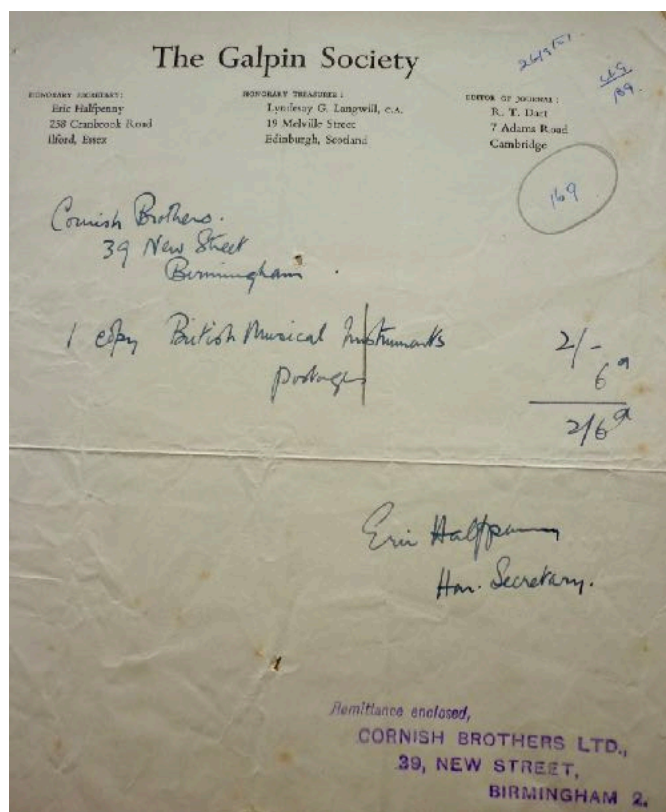 The Galpin Society
HONORARY SECRETARY:
Eric Halfpenny
258 Cranbrook Road
Ilford, Essex
HONORARY TREASURER:
Lyndesay G. Langwill, C.A.
19 Melville Street
Edinburgh, Scotland
EDITOR OF JOURNAL:
R. T. Dart
7 Adams Road
Cambridge
169
Cornish Brothers.
39 New Street
Birmingham.
1 copy British Musical Instruments 2/-
postages 6d
2/6d
Eric Halfpenny
Hon. Secretary.
Remittance enclosed,
CORNISH BROTHERS LTD.,
39, NEW STREET,
BIRMINGHAM 2.